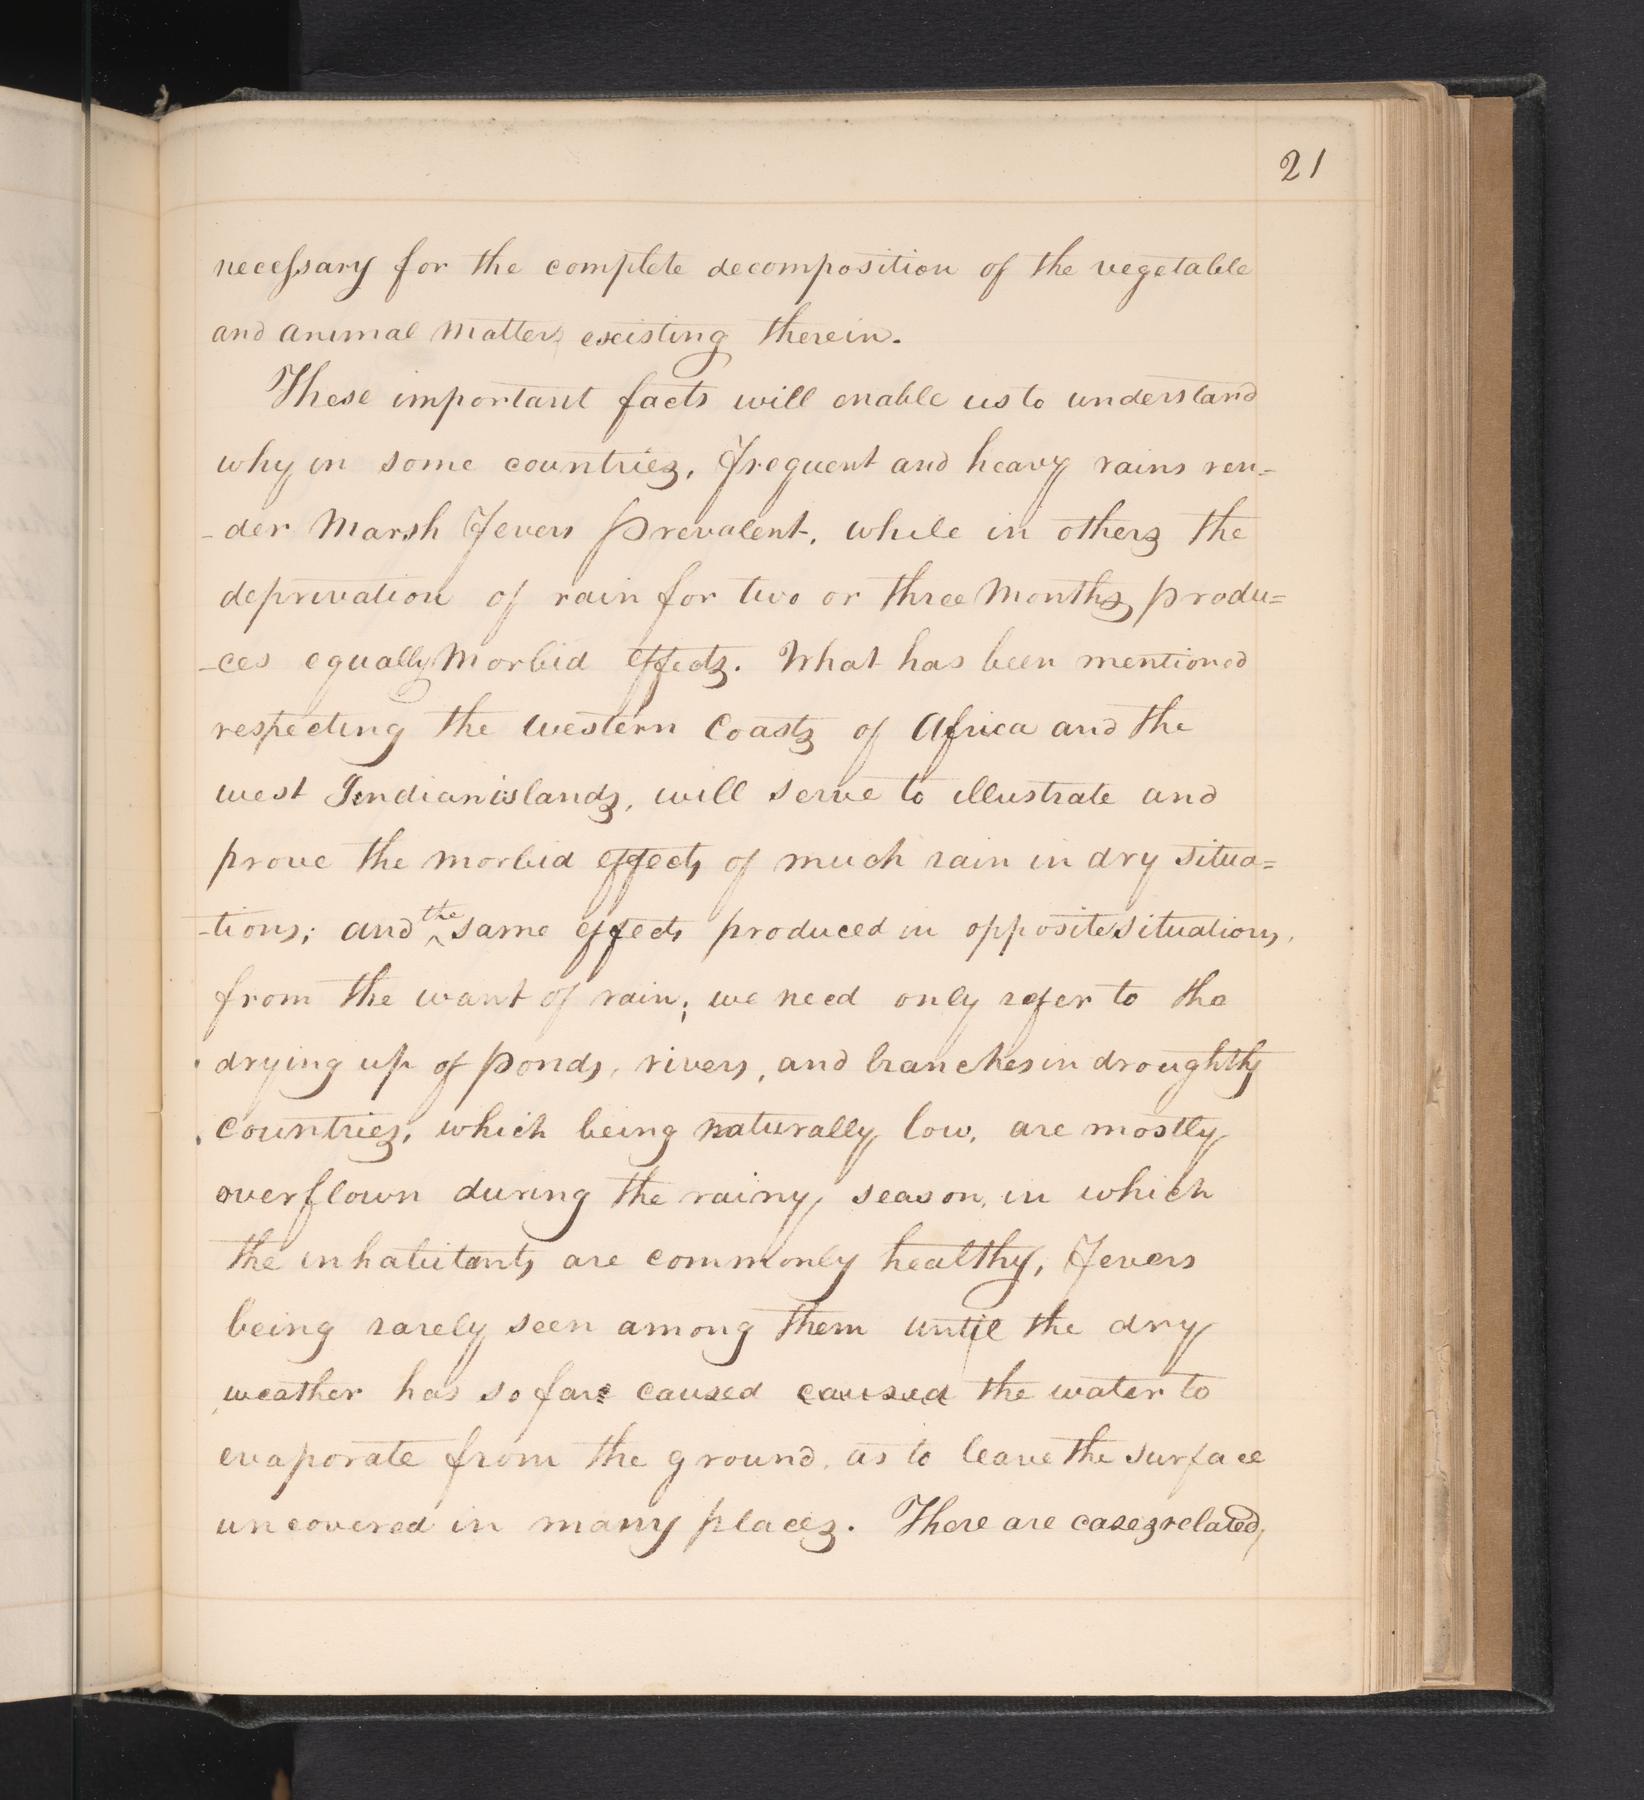 21
necessary for the complete decomposition of the vegetable
and animal matters existing therein.
These important facts will enable us to understand
why in some countries, frequent and heavy rains ren=
-der Marsh Fevers prevalent, while in others the
deprivation of rain for two or three Months produ=
-ces equally Morbid effects. What has been mentioned
respecting the western Coasts of Africa and the
west Indian islands, will serve to illustrate and
prove the morbid effects of much rain in dry situa=
-tions; and the same effects produced in opposite situations,
from the want of rain; we need only refer to the
drying up of ponds, rivers, and branches in droughthy
countries, which being naturally low, are mostly
overflown during the rainy season, in which
the inhabitants are commonly healthy, Fevers
being rarely seen among them until the dry
weather has so far caused caused the water to
evaporate from the ground, as to leave the surface
uncovered in many places. There are cases related,